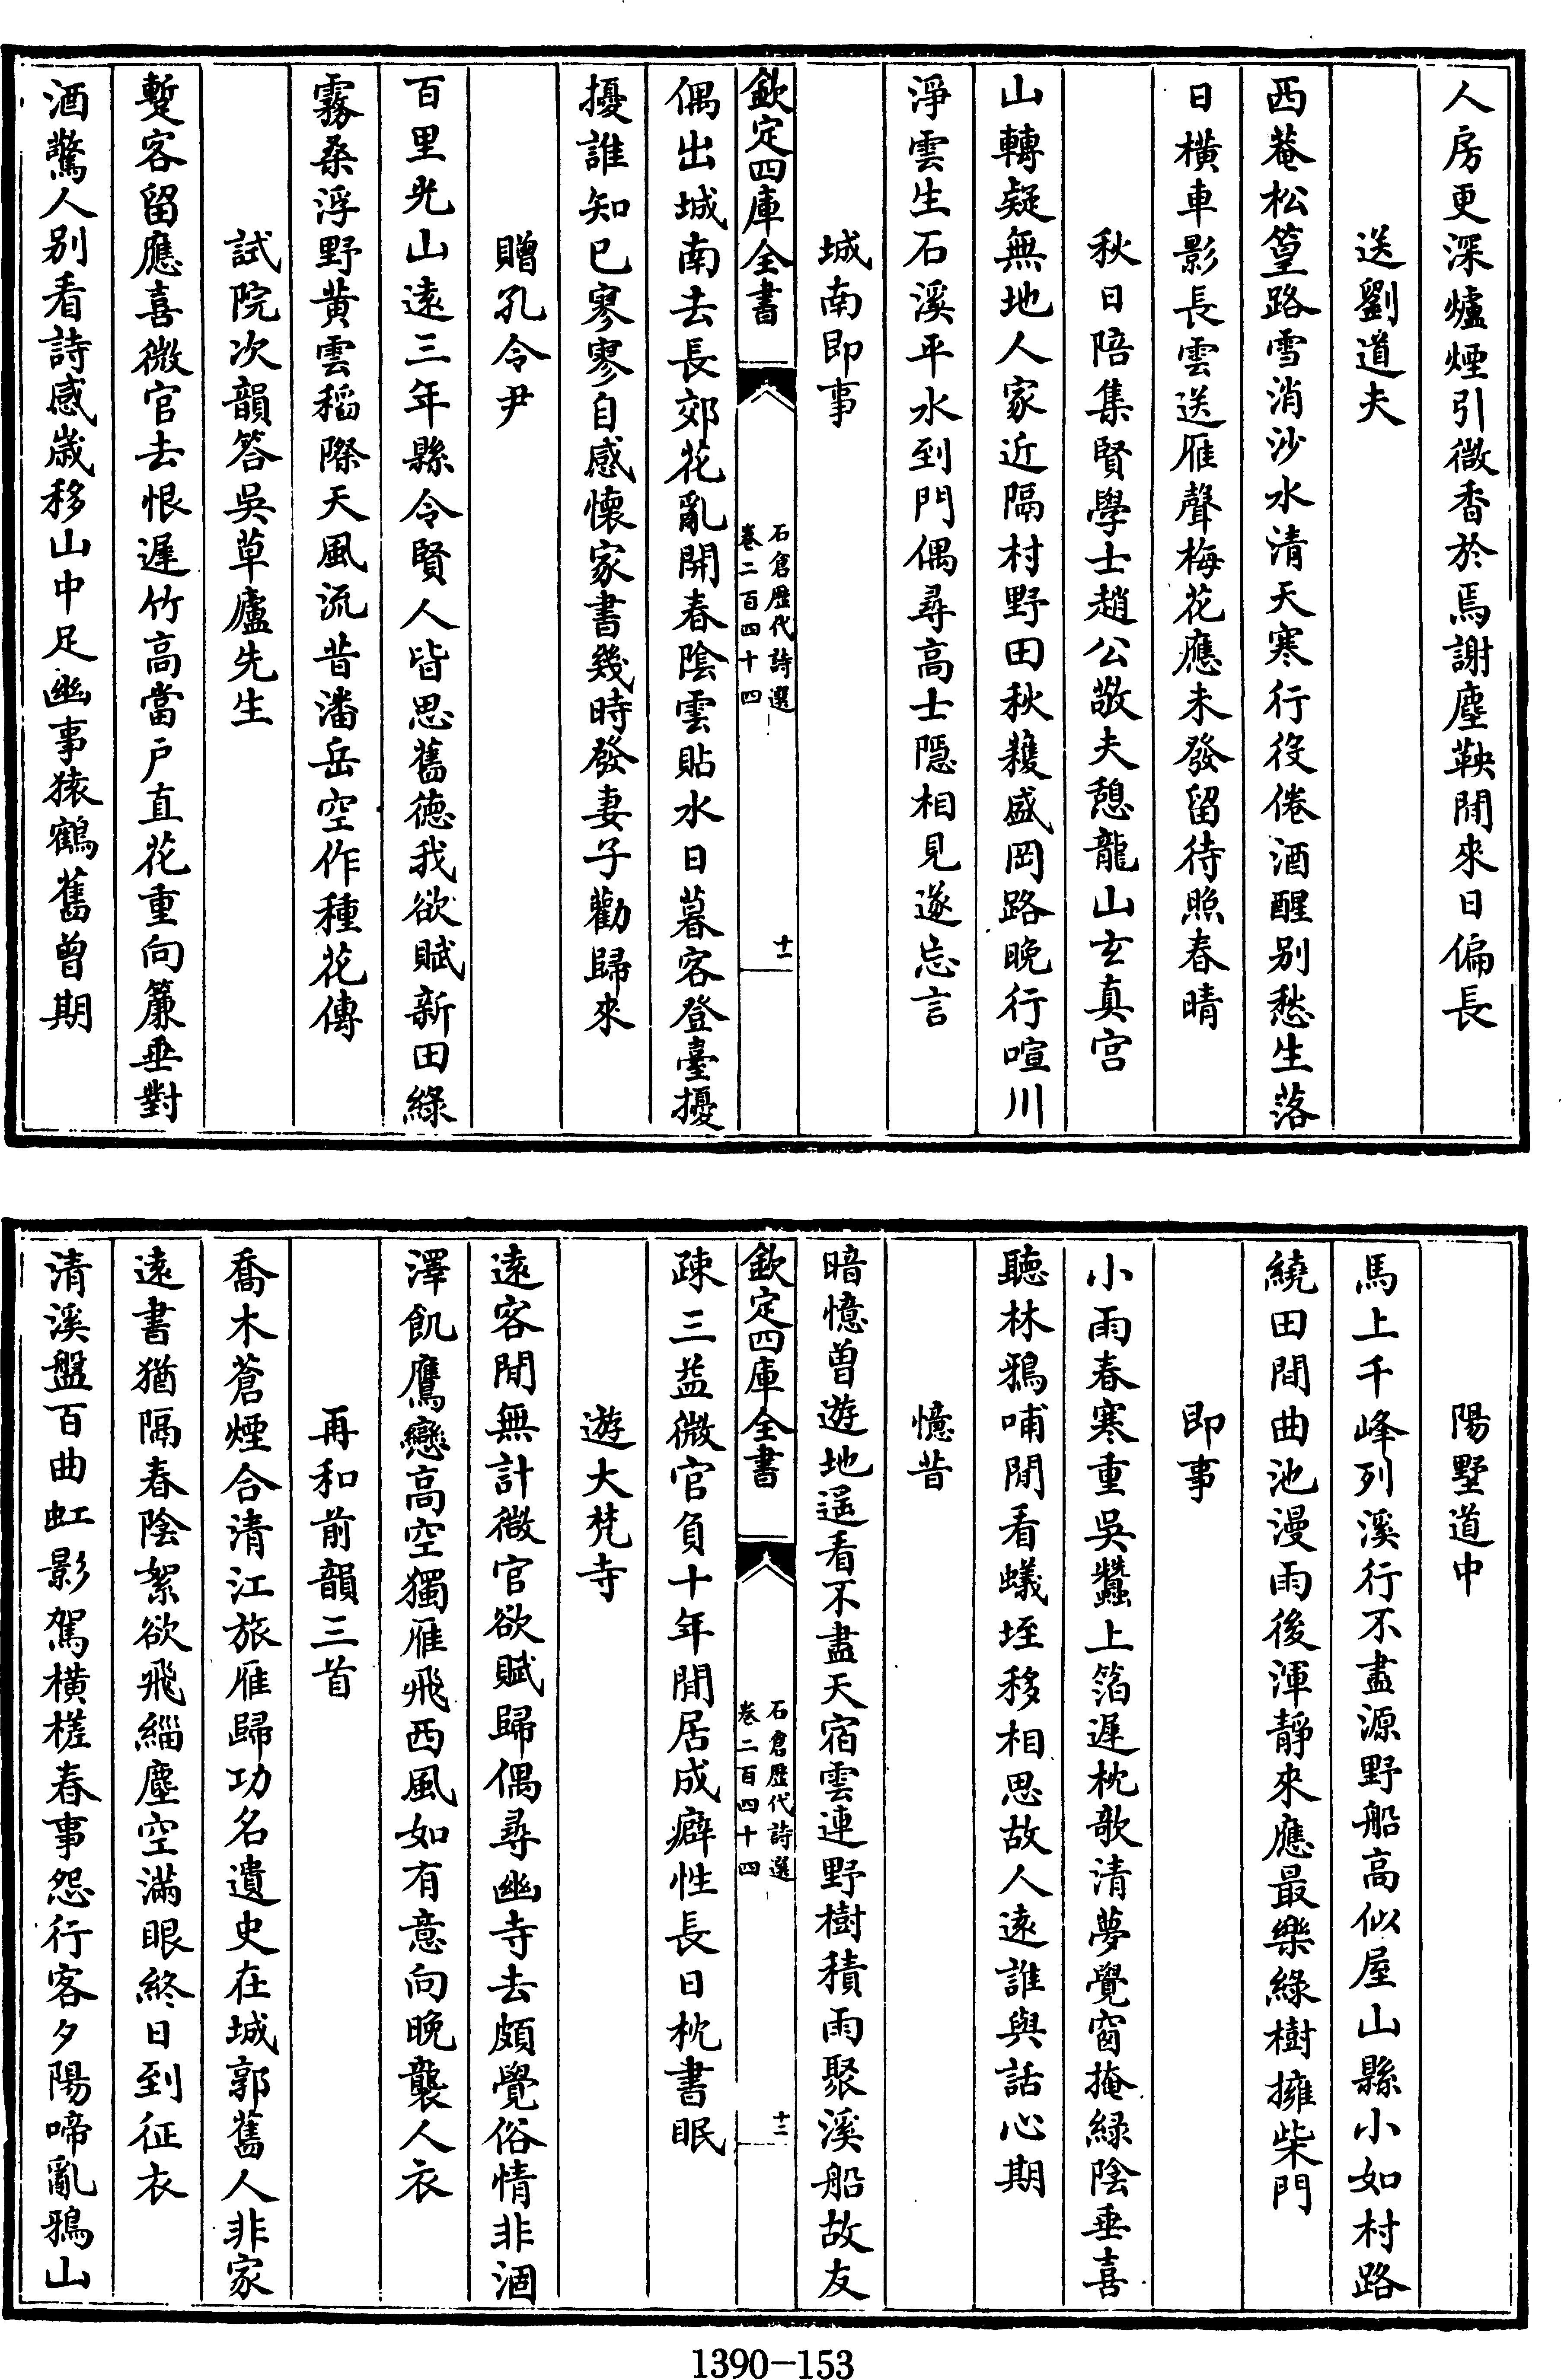 人房更深爐煙引微香於焉謝塵鞅閒來日偏長
送劉道夫
西菴松篁路雪消沙水清天寒行役倦酒醒别愁生落
日横車影長雲送雁聲梅花應未發留待照春晴
秋日陪集賢學士趙公敬夫憩龍山玄真宫
山轉疑無地人家近隔村野田秋穫盛岡路晩行喧川
淨雲生石溪平水到門偶尋高士隱相見遂忘言
城南即事
欽定四庫全書
石倉歴代詩選
卷二百四十四
十一
偶出城南去長郊花亂開春陰雲貼水日暮客登臺擾
擾誰知已寥寥自感懷家書幾時發妻子勸歸來
贈孔令尹
百里光山遠三年縣令賢人皆思舊徳我欲賦新田綠
霧桑浮野黄雲稻際天風流昔潘岳空作種花傳
試院次韻答吳草廬先生
蹔客留應喜微官去恨遲竹高當户直花重向簾垂對
酒驚人别看詩感歳移山中足幽事猿鶴舊曾期
陽墅道中
馬上千峰列溪行不盡源野船高似屋山縣小如村路
繞田間曲池漫雨後渾靜來應最樂綠樹擁柴門
即事
小雨春寒重吳蠶上箔遲枕歌清夢覺窗掩緑陰垂喜
聽林鴉哺閒看蟻垤移相思故人遠誰與話心期
憶昔
暗憶曽遊地遥看不盡天宿雲連野樹積雨聚溪船故友
欽定四庫全書
石倉歴代詩選
卷二百四十四
十二
疎三益微官負十年閒居成癖性長日枕書眠
遊大梵寺
遠客閒無計微官欲賦歸偶尋幽寺去頗覺俗情非涸
澤飢鷹戀高空獨雁飛西風如有意向晚襲人衣
再和前韻三首
喬木蒼煙合清江旅雁歸功名遺史在城郭舊人非家
遠書猶隔春陰絮欲飛緇塵空滿眼終日到征衣
清溪盤百曲虹影駕横槎春事怨行客夕陽啼亂鴉山
1390—153